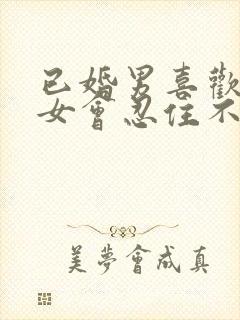 已婚男喜歡
女會忍住不
美夢會成真